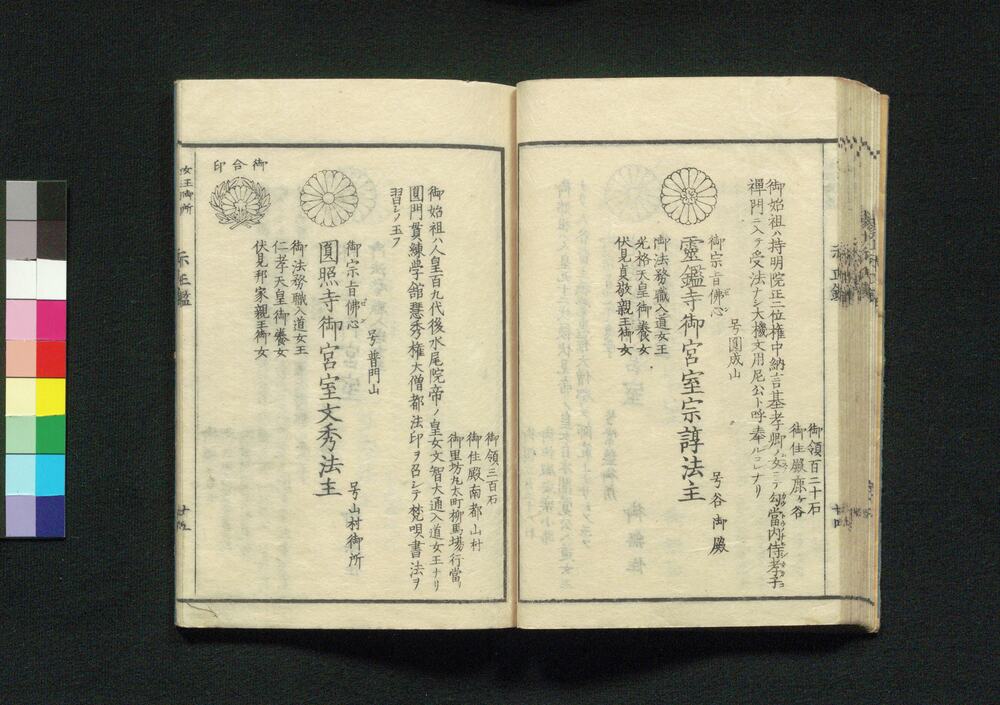 御領百二十石
御住殿鹿ヶ谷
御始祖ハ持明院正二位権中納言基孝卿ノ女ニテ勾當内侍孝子
禪門ニ入テ受法ナシ大機文用尼公ト呼奉ルコレナリ
号圓成山
御宗旨佛心
靈鑑寺御宮室宗諄法主
号谷御殿
御法務職入道女王
光格天皇御養女
伏見貞敬親王御女
御領三百石
御住殿南都山村
御里坊丸太町柳馬場行當
御始祖ハ人皇百九代後水尾院帝ノ皇女文智大通入道女王ナリ
圓門貫練学舘慧秀権大僧都法印ヲ召シテ梵唄書法ヲ
習シ玉フ
号普門山
御宗旨佛心
圓照寺御宮室文秀法主
号山村御所
御法務職入道女王
仁孝天皇御養女
伏見邦家親王御女
御合印
女王御所